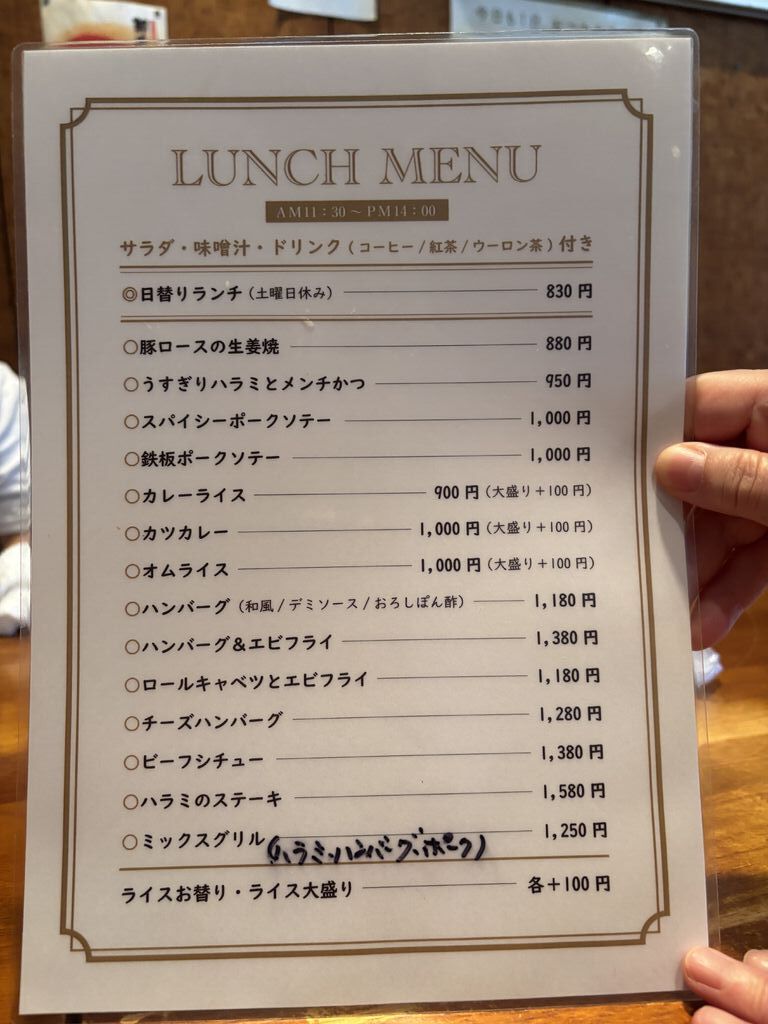 LUNCH MENU
AM11:30～PM14:00
サラダ・味噌汁・ドリンク(コーヒー/紅茶/ウーロン茶)付き
◎日替りランチ(土曜日休み) 830円
○豚ロースの生姜焼 880円
○うすぎりハラミとメンチかつ 950円
○スパイシーポークソテー 1,000円
○鉄板ポークソテー 1,000円
○カレーライス 900円(大盛り+100円)
○カツカレー 1,000円(大盛り+100円)
○オムライス 1,000円(大盛り+100円)
○ハンバーグ(和風/デミソース/おろしぽん酢) 1,180円
○ハンバーグ&エビフライ 1,380円
○ロールキャベツとエビフライ 1,180円
○チーズハンバーグ 1,280円
○ビーフシチュー 1,380円
○ハラミのステーキ 1,580円
○ミックスグリル 1,250円
(ハラミ・ハンバーグ・ポーク)
ライスお替り・ライス大盛り 各+100円